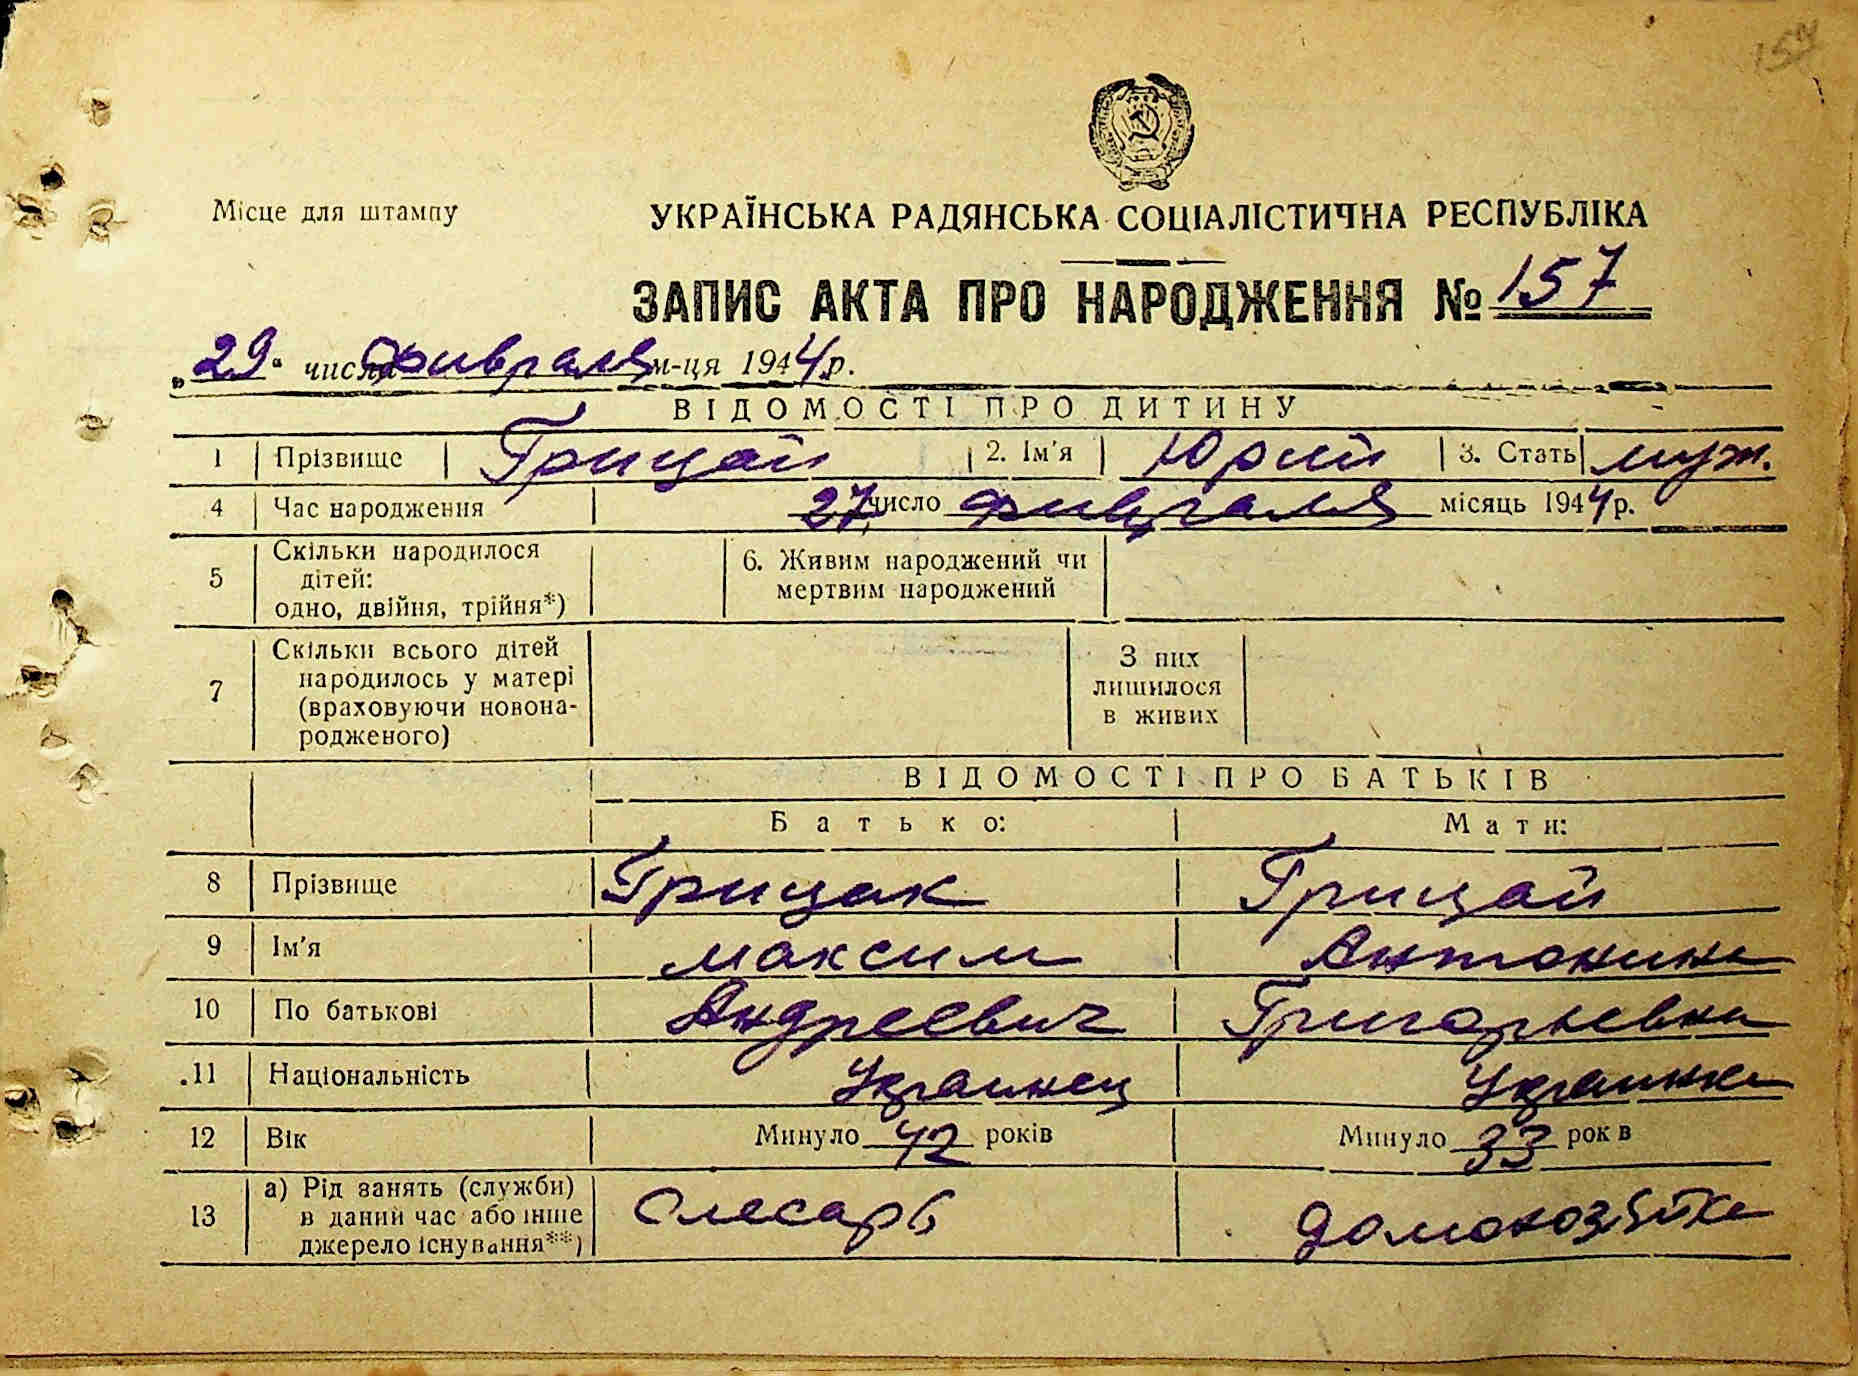 157
Місце для штампу
УКРАЇНСЬКА РАДЯНСЬКА СОЦІАЛІСТИЧНА РЕСПУБЛІКА
ЗАПИС АКТА ПРО НАРОДЖЕННЯ № 157
„29“ числа февраля м-ця 1944 р.
ВІДОМОСТІ ПРО ДИТИНУ
1 Прізвище Грицай 2. Ім'я Юрий 3. Стать муж.
4 Час народження 27 число февраля місяць 1944 р.
5 Скільки народилося дітей: одно, двійня, трійня*) 6. Живим народжений чи мертвим народжений
7 Скільки всього дітей народилось у матері (враховуючи новонародженого) З них лишилося в живих
ВІДОМОСТІ ПРО БАТЬКІВ
Батько: Мати:
8 Прізвище Грицак Грицай
9 Ім'я Максим Антонина
10 По батькові Андреевич Григорьевна
11 Національність Украинец Украинка
12 Вік Минуло 42 років Минуло 33 рок в
13 а) Рід занять (служби) в даний час або інше джерело існування**) Слесарь домохозяйка